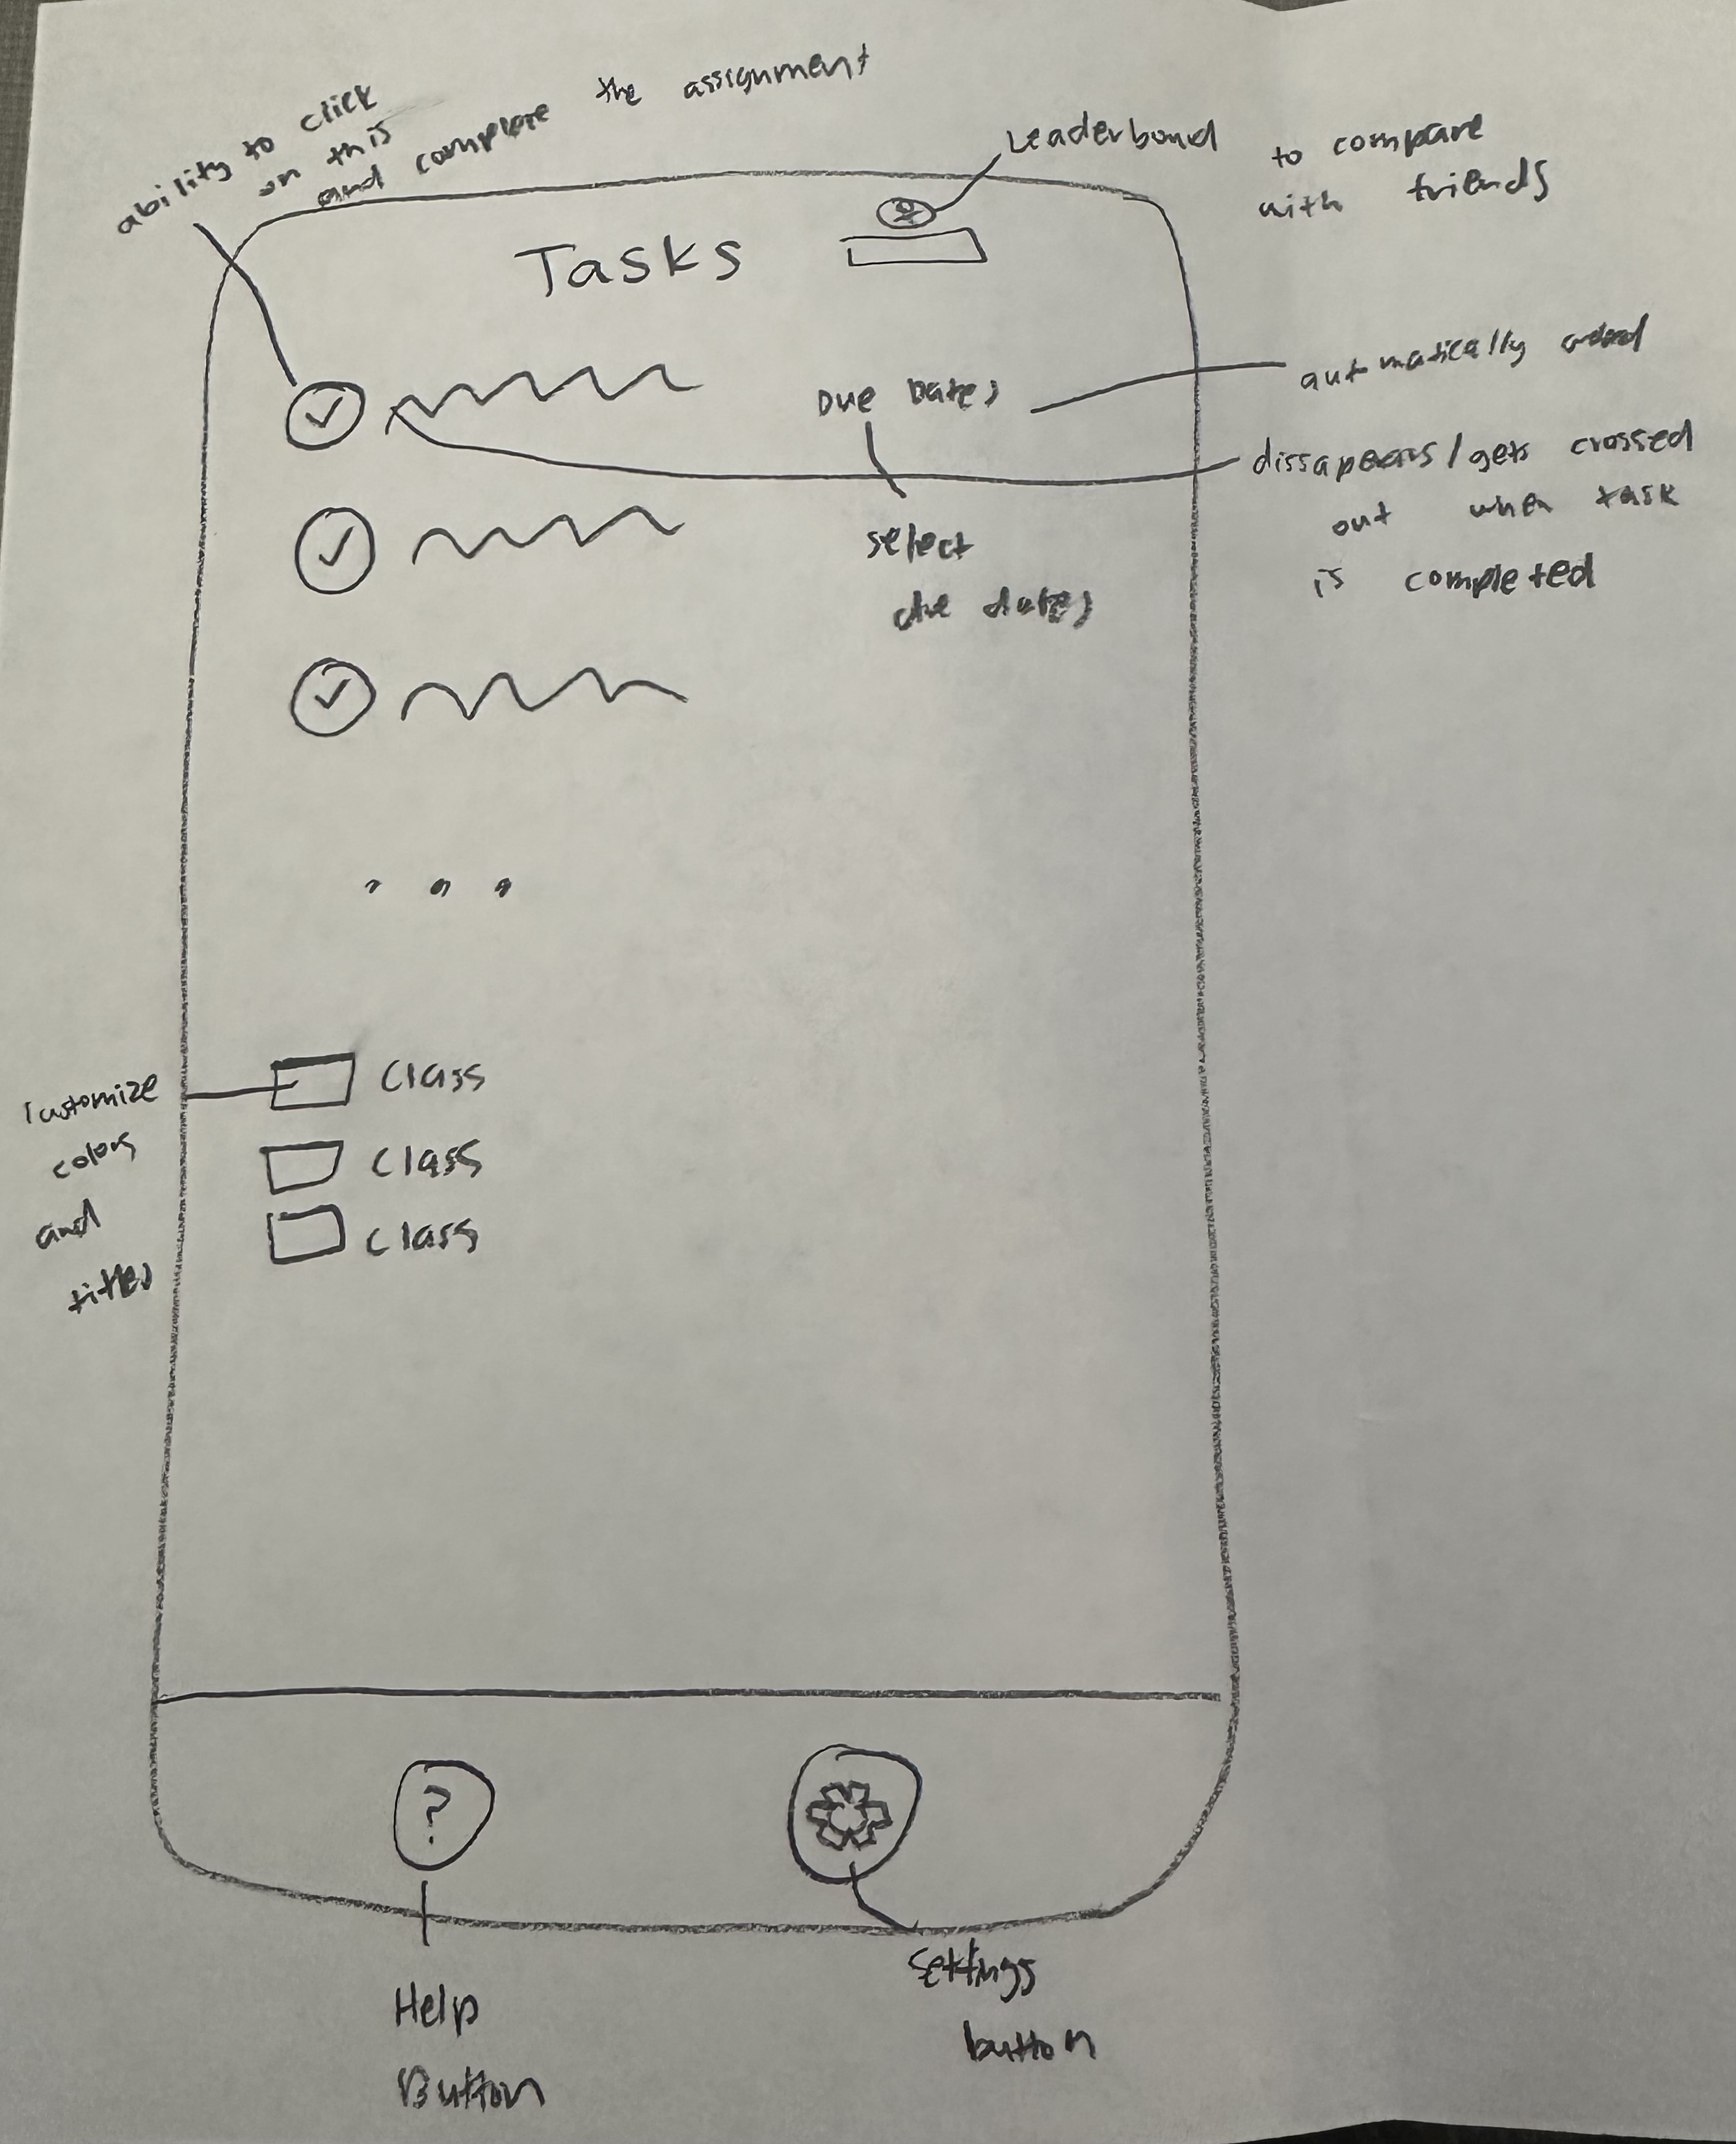 ability to click
on this
and complete the assignment
Leaderboard
to compare
with friends
Tasks
Due Dates
automatically added
dissapears/gets crossed
out when task
is completed
select
due dates
Customize
colors
and
titles
class
class
class
?
Help
Button
settings
button